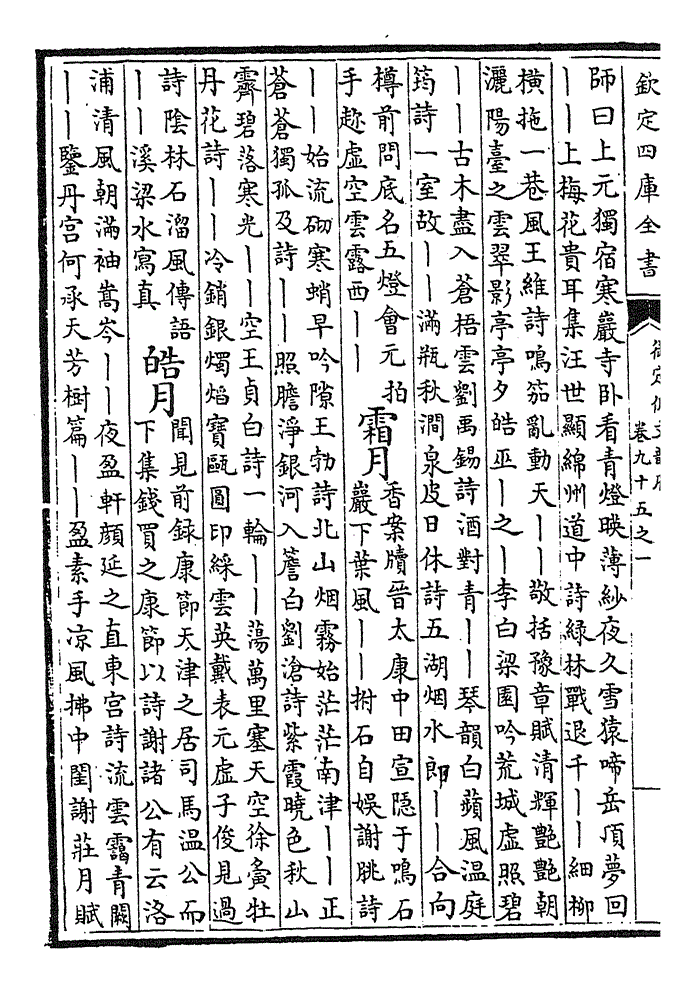 欽定四庫全書
卷九十五之一
師曰上元獨宿寒巖寺卧看青燈映薄紗夜久雪猿啼岳頂夢回
——上梅花貴耳集汪世顯綿州道中詩緑林戰退千——細柳
橫拖一巷風王維詩鳴笳亂動天——敬括豫章賦清輝艷艷朝
灑陽臺之雲翠影亭亭夕皓巫—之—李白梁園吟荒城虛照碧
——古木盡入蒼梧雲劉禹錫詩酒對青——琴韻白蘋風溫庭
筠詩一室故——滿瓶秋澗泉皮日休詩五湖烟水郎——合向
樽前問底名五燈會元拍
手趂虛空雲露西——
霜月
香案牘晉太康中田宣隱于鳴石
巖下葉風——拊石自娛謝朓詩
——始流砌寒蛸早吟隙王勃詩北山烟霧始茫茫南津——正
蒼蒼獨孤及詩——照膽淨銀河入簷白劉滄詩紫霞曉色秋山
霽碧落寒光——空王貞白詩一輪——蕩萬里塞天空徐夤牡
丹花詩——冷銷銀燭焰寶甌圓印綵雲英戴表元虛子俊見過
詩陰林石溜風傳語
——溪梁水寫真
皓月
聞見前録康節天津之居司馬温公而
下集錢買之康節以詩謝諸公有云洛
浦清風朝滿袖嵩岑——夜盈軒顔延之直東宫詩流雲靄青闕
——鑒丹宫何承天芳樹篇——盈素手凉風拂中閨謝莊月賦